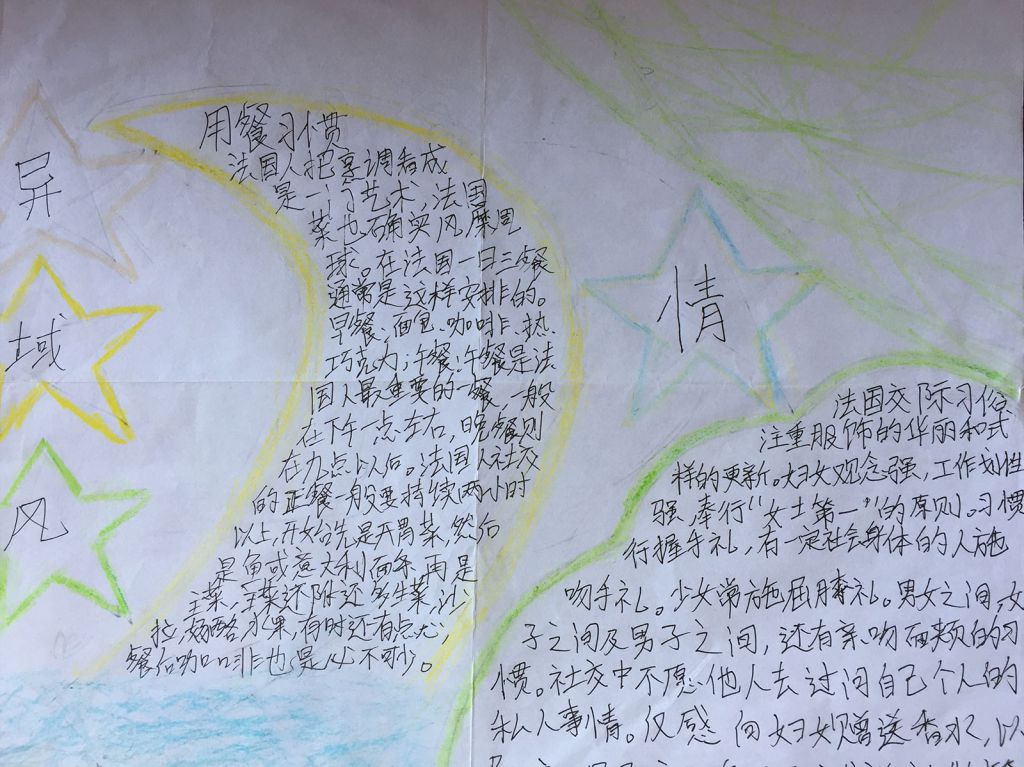 异
域
风
情
用餐习惯
法国人把烹调看成
是一门艺术，法国
菜也确实风靡周
球。在法国一日三餐
通常是这样安排的。
早餐：面包、咖啡、热
巧克力；午餐：午餐是法
国人最重要的一餐 一般
在下午一点左右，晚餐则
在九点以后。法国人社交
的正餐一般要持续两小时
以上，开始先是开胃菜，然后
是鱼或意大利面条，再是
主菜，主菜还附还多生菜，沙
拉，奶酪水果，有时还有点心，
餐后咖啡也是必不可少。
法国交际习俗
注重服饰的华丽和式
样的更新。妇女观念强，工作划性
强 奉行“女士第一”的原则。习惯
行握手礼，有一定社会身体的人施
吻手礼。少女常施屈膝礼。男女之间，女
子之间及男子之间，还有亲吻面颊的习
惯。社交中不愿他人去过问自己个人的
私人事情。仅感 向妇女赠送香水，以